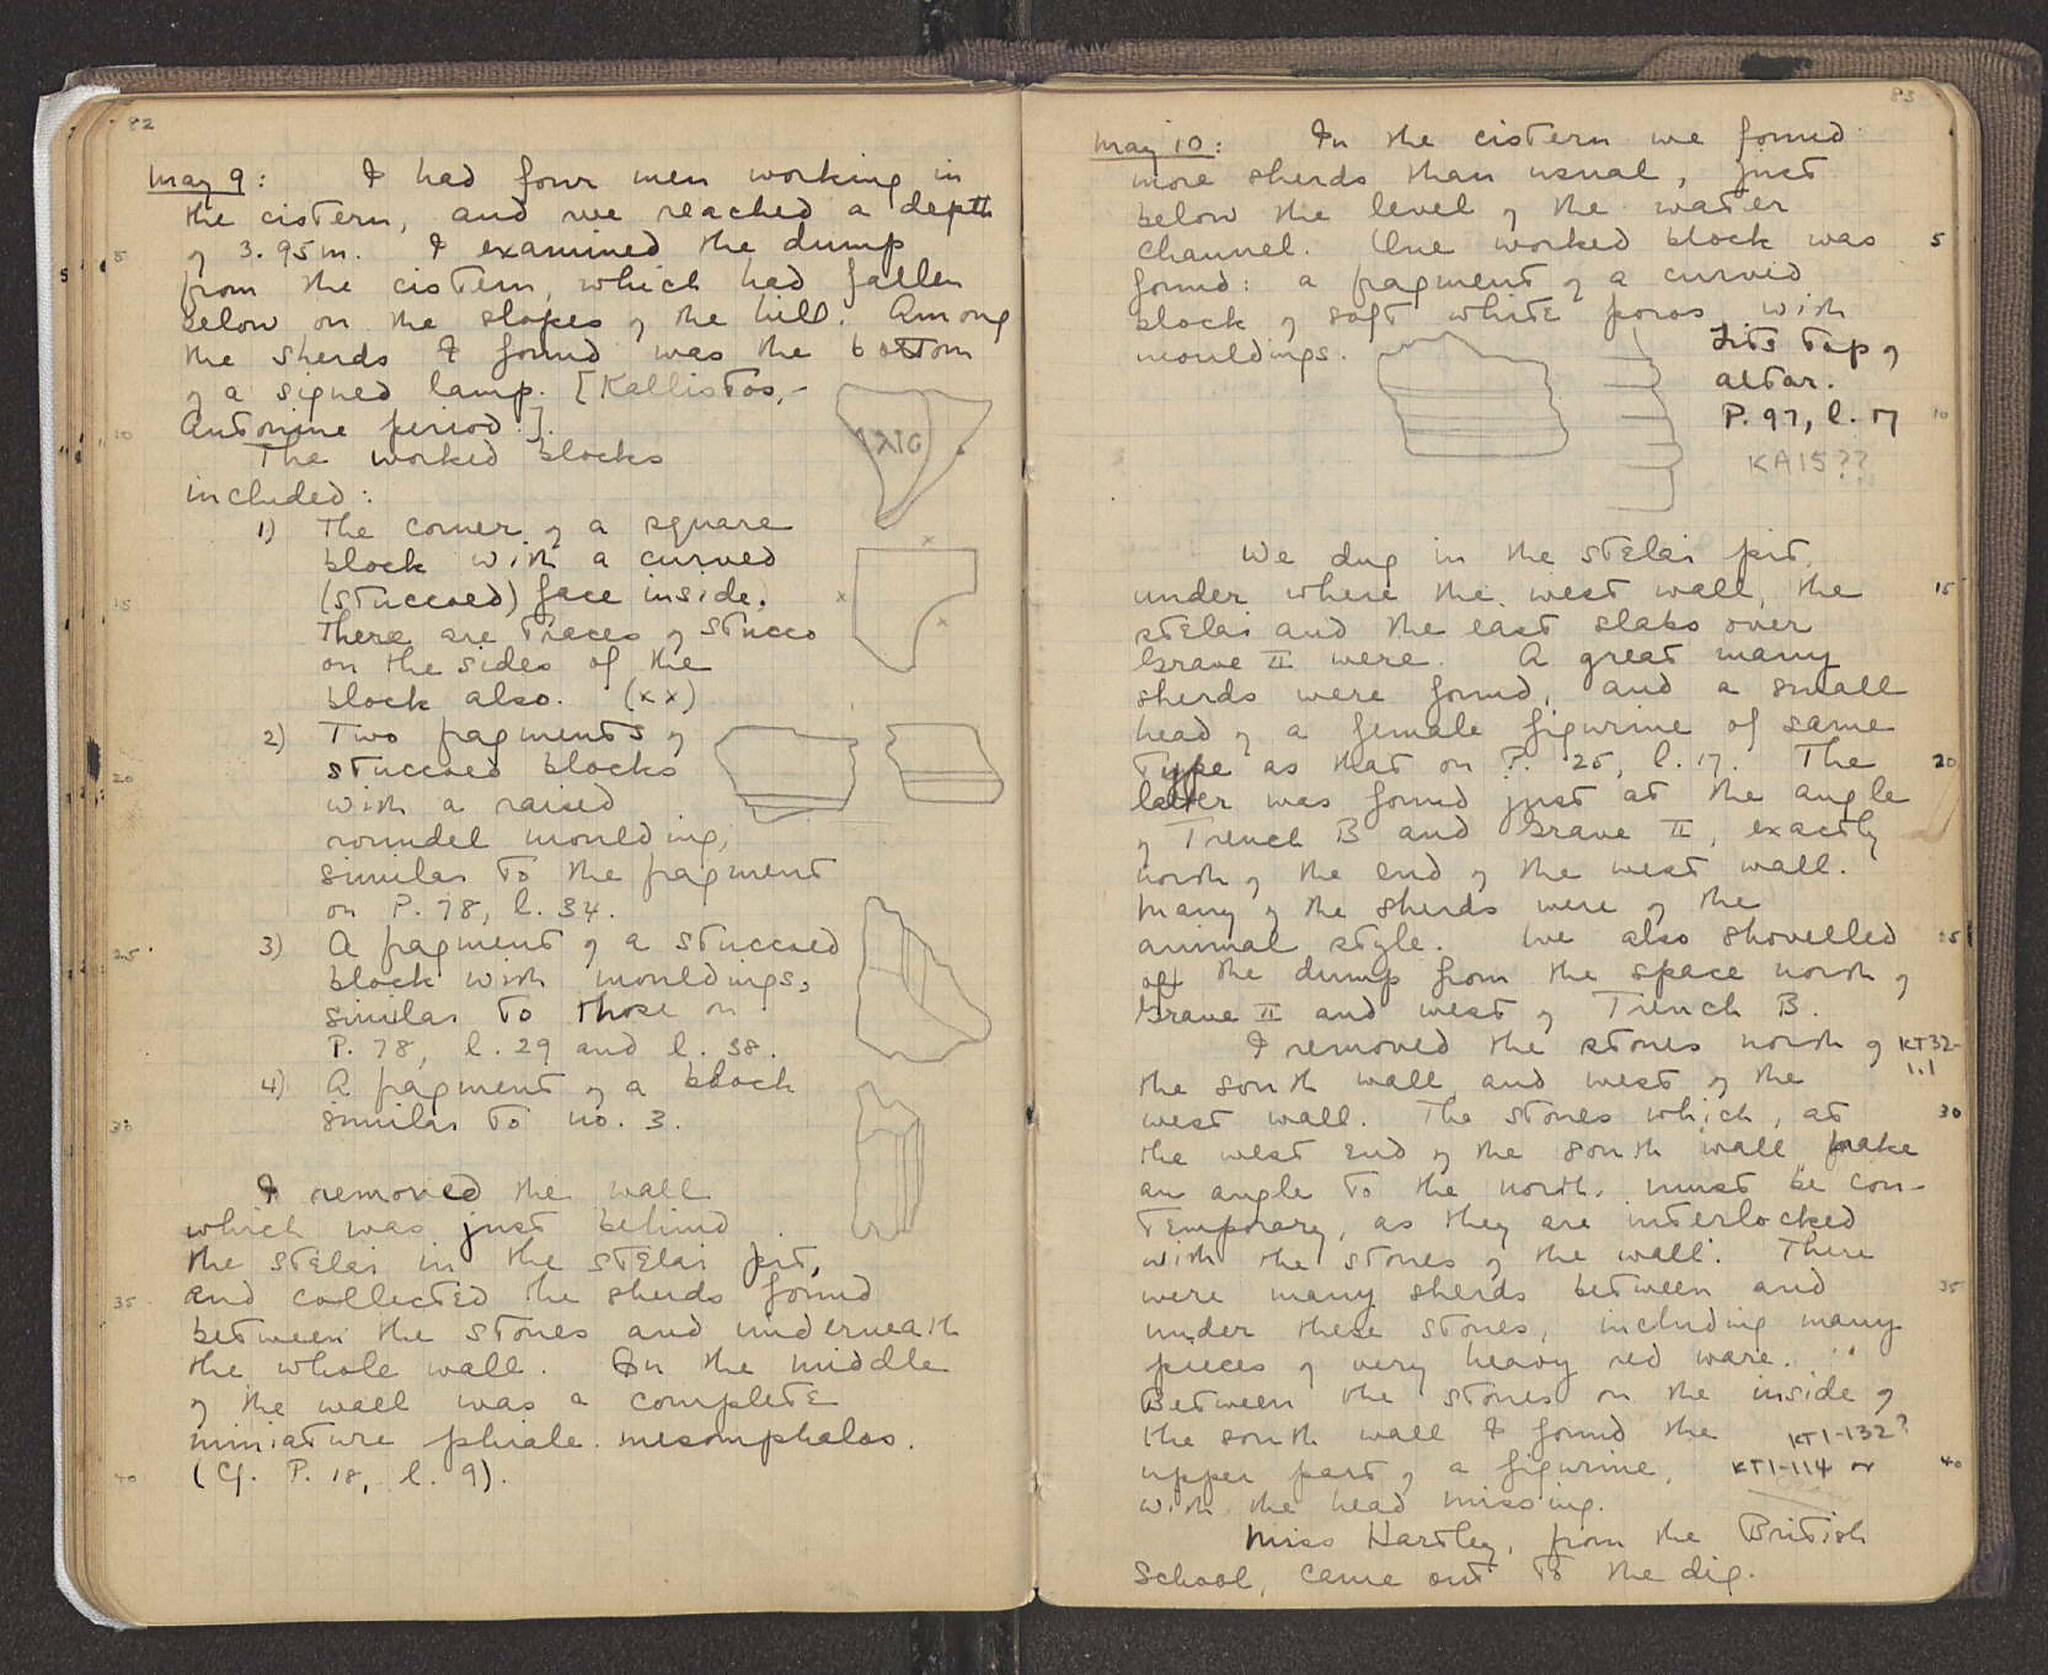 82
May 9: I had four men working in
the cistern, and we reached a depth
of 3.95m. I examined the dump
from the cistern, which had fallen
below on the slopes of the hill. Among
the sherds I found was the bottom
of a signed lamp. [Kallistos,-
Antonine period.].
The worked blocks
included:
1) The corner of a square
block with a curved
(stuccoed) face inside.
There are traces of stucco
on the sides of the
block also. (xx)
2) Two fragments of
stuccoed blocks
with a raised
roundel moulding,
similar to the fragment
on P. 78, l. 34.
3) A fragment of a stuccoed
block with mouldings,
similar to those on
P. 78, l. 29 and l. 38.
4) A fragment of a block
similar to no. 3.
I removed the wall
which was just behind
the stelai in the stelai pit,
and collected the sherds found
between the stones and underneath
the whole wall. In the middle
of the wall was a complete
miniature phiale mesomphalos.
(Cf. P. 18, l. 9).
5
10
15
20
25
30
35
40
x
x
x
83
May 10: In the cistern we found
more sherds than usual, just
below the level of the water
channel. One worked block was
found: a fragment of a curved
block of soft white poros with
mouldings.
Fits top of
altar.
P. 97, l. 17
KA15??
We dug in the stelai pit,
under where the west wall, the
stelai and the east slabs over
Grave II were. A great many
sherds were found, and a small
head of a female figurine of same
type as that on P. 25, l. 17. The
latter was found just at the angle
of Trench B and Grave II, exactly
north of the end of the west wall.
Many of the sherds were of the
animal style. We also shovelled
off the dump from the space north of
Grave II and west of Trench B.
I removed the stones north of KT32-
1.1
the south wall and west of the
west wall. The stones which, at
the west end of the south wall make
an angle to the north, must be con-
temporary, as they are interlocked
with the stones of the wall. There
were many sherds between and
under these stones, including many
pieces of very heavy red ware.
Between the stones on the inside of
the south wall I found the KT1-132?
upper part of a figurine, KT1-114 or
with the head missing.
Miss Hartley, from the British
School, came out to the dig.
5
10
15
20
25
30
35
40